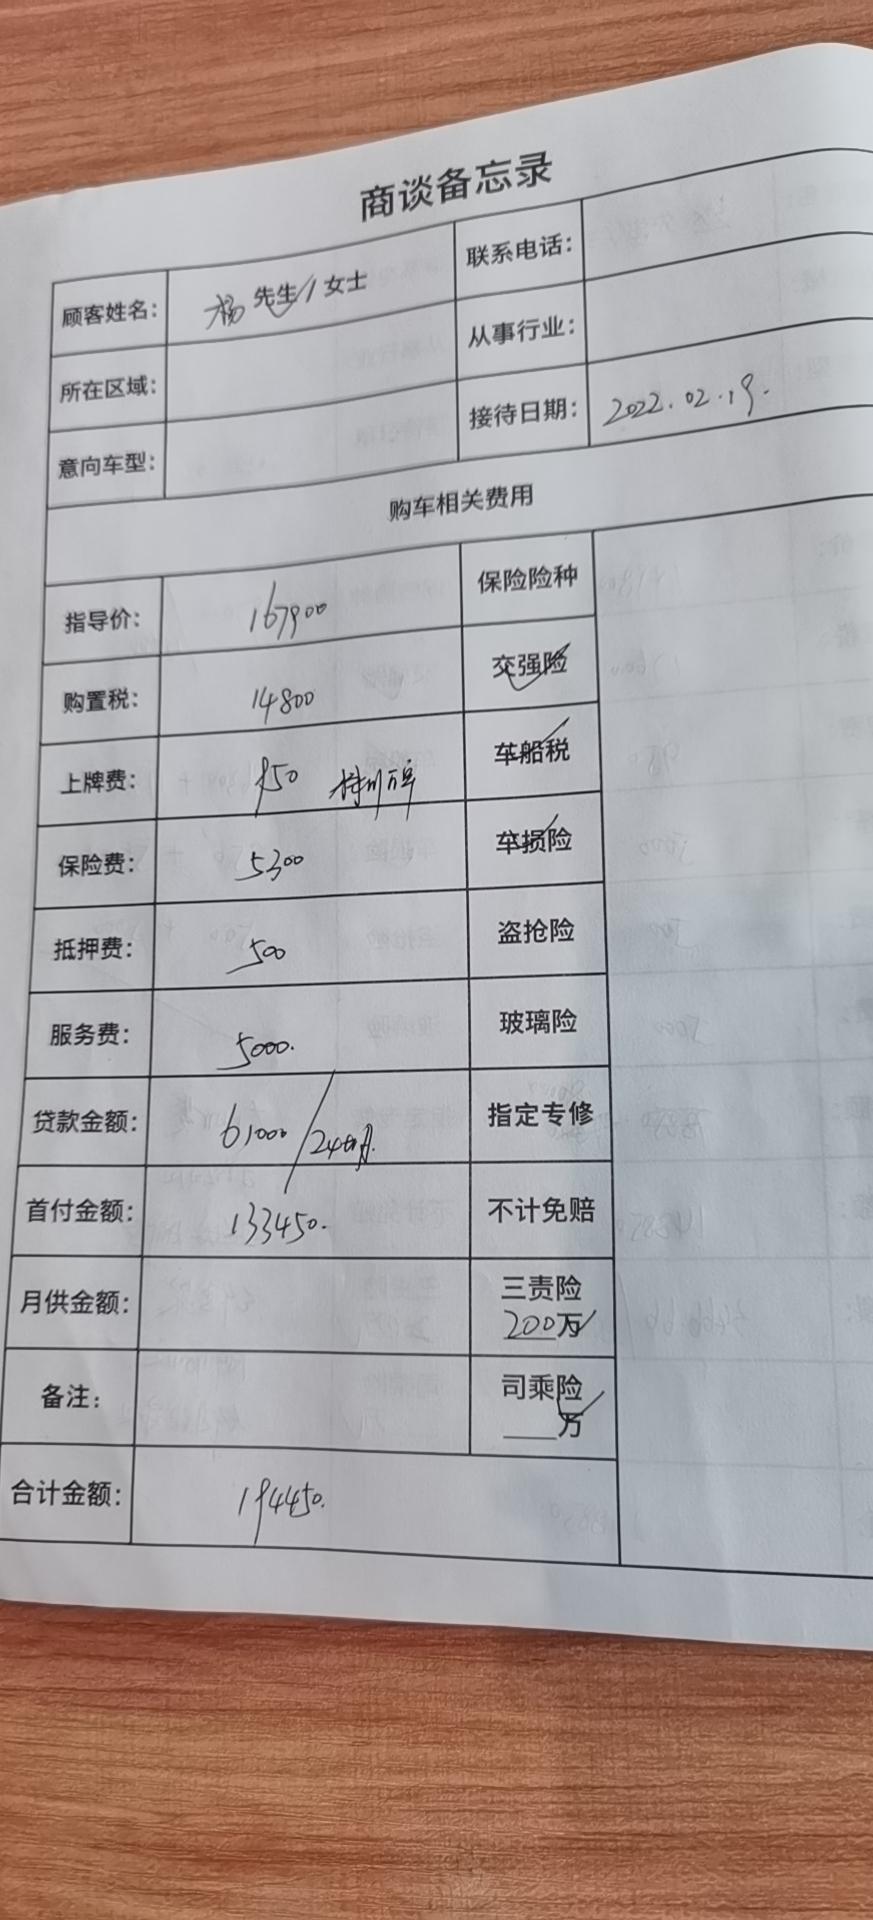 商谈备忘录
顾客姓名： 杨 先生 / 女士 联系电话：
所在区域： 从事行业：
意向车型： 接待日期： 2022.02.19.
购车相关费用
指导价： 167900 保险险种
购置税： 14800 交强险
上牌费： 950 车船税
保险费： 5300 车损险
抵押费： 500 盗抢险
服务费： 5000. 玻璃险
贷款金额： 61000 / 24 指定专修
首付金额： 133450. 不计免赔
月供金额： 三责险
200万
备注： 司乘险
___万
合计金额： 194450.